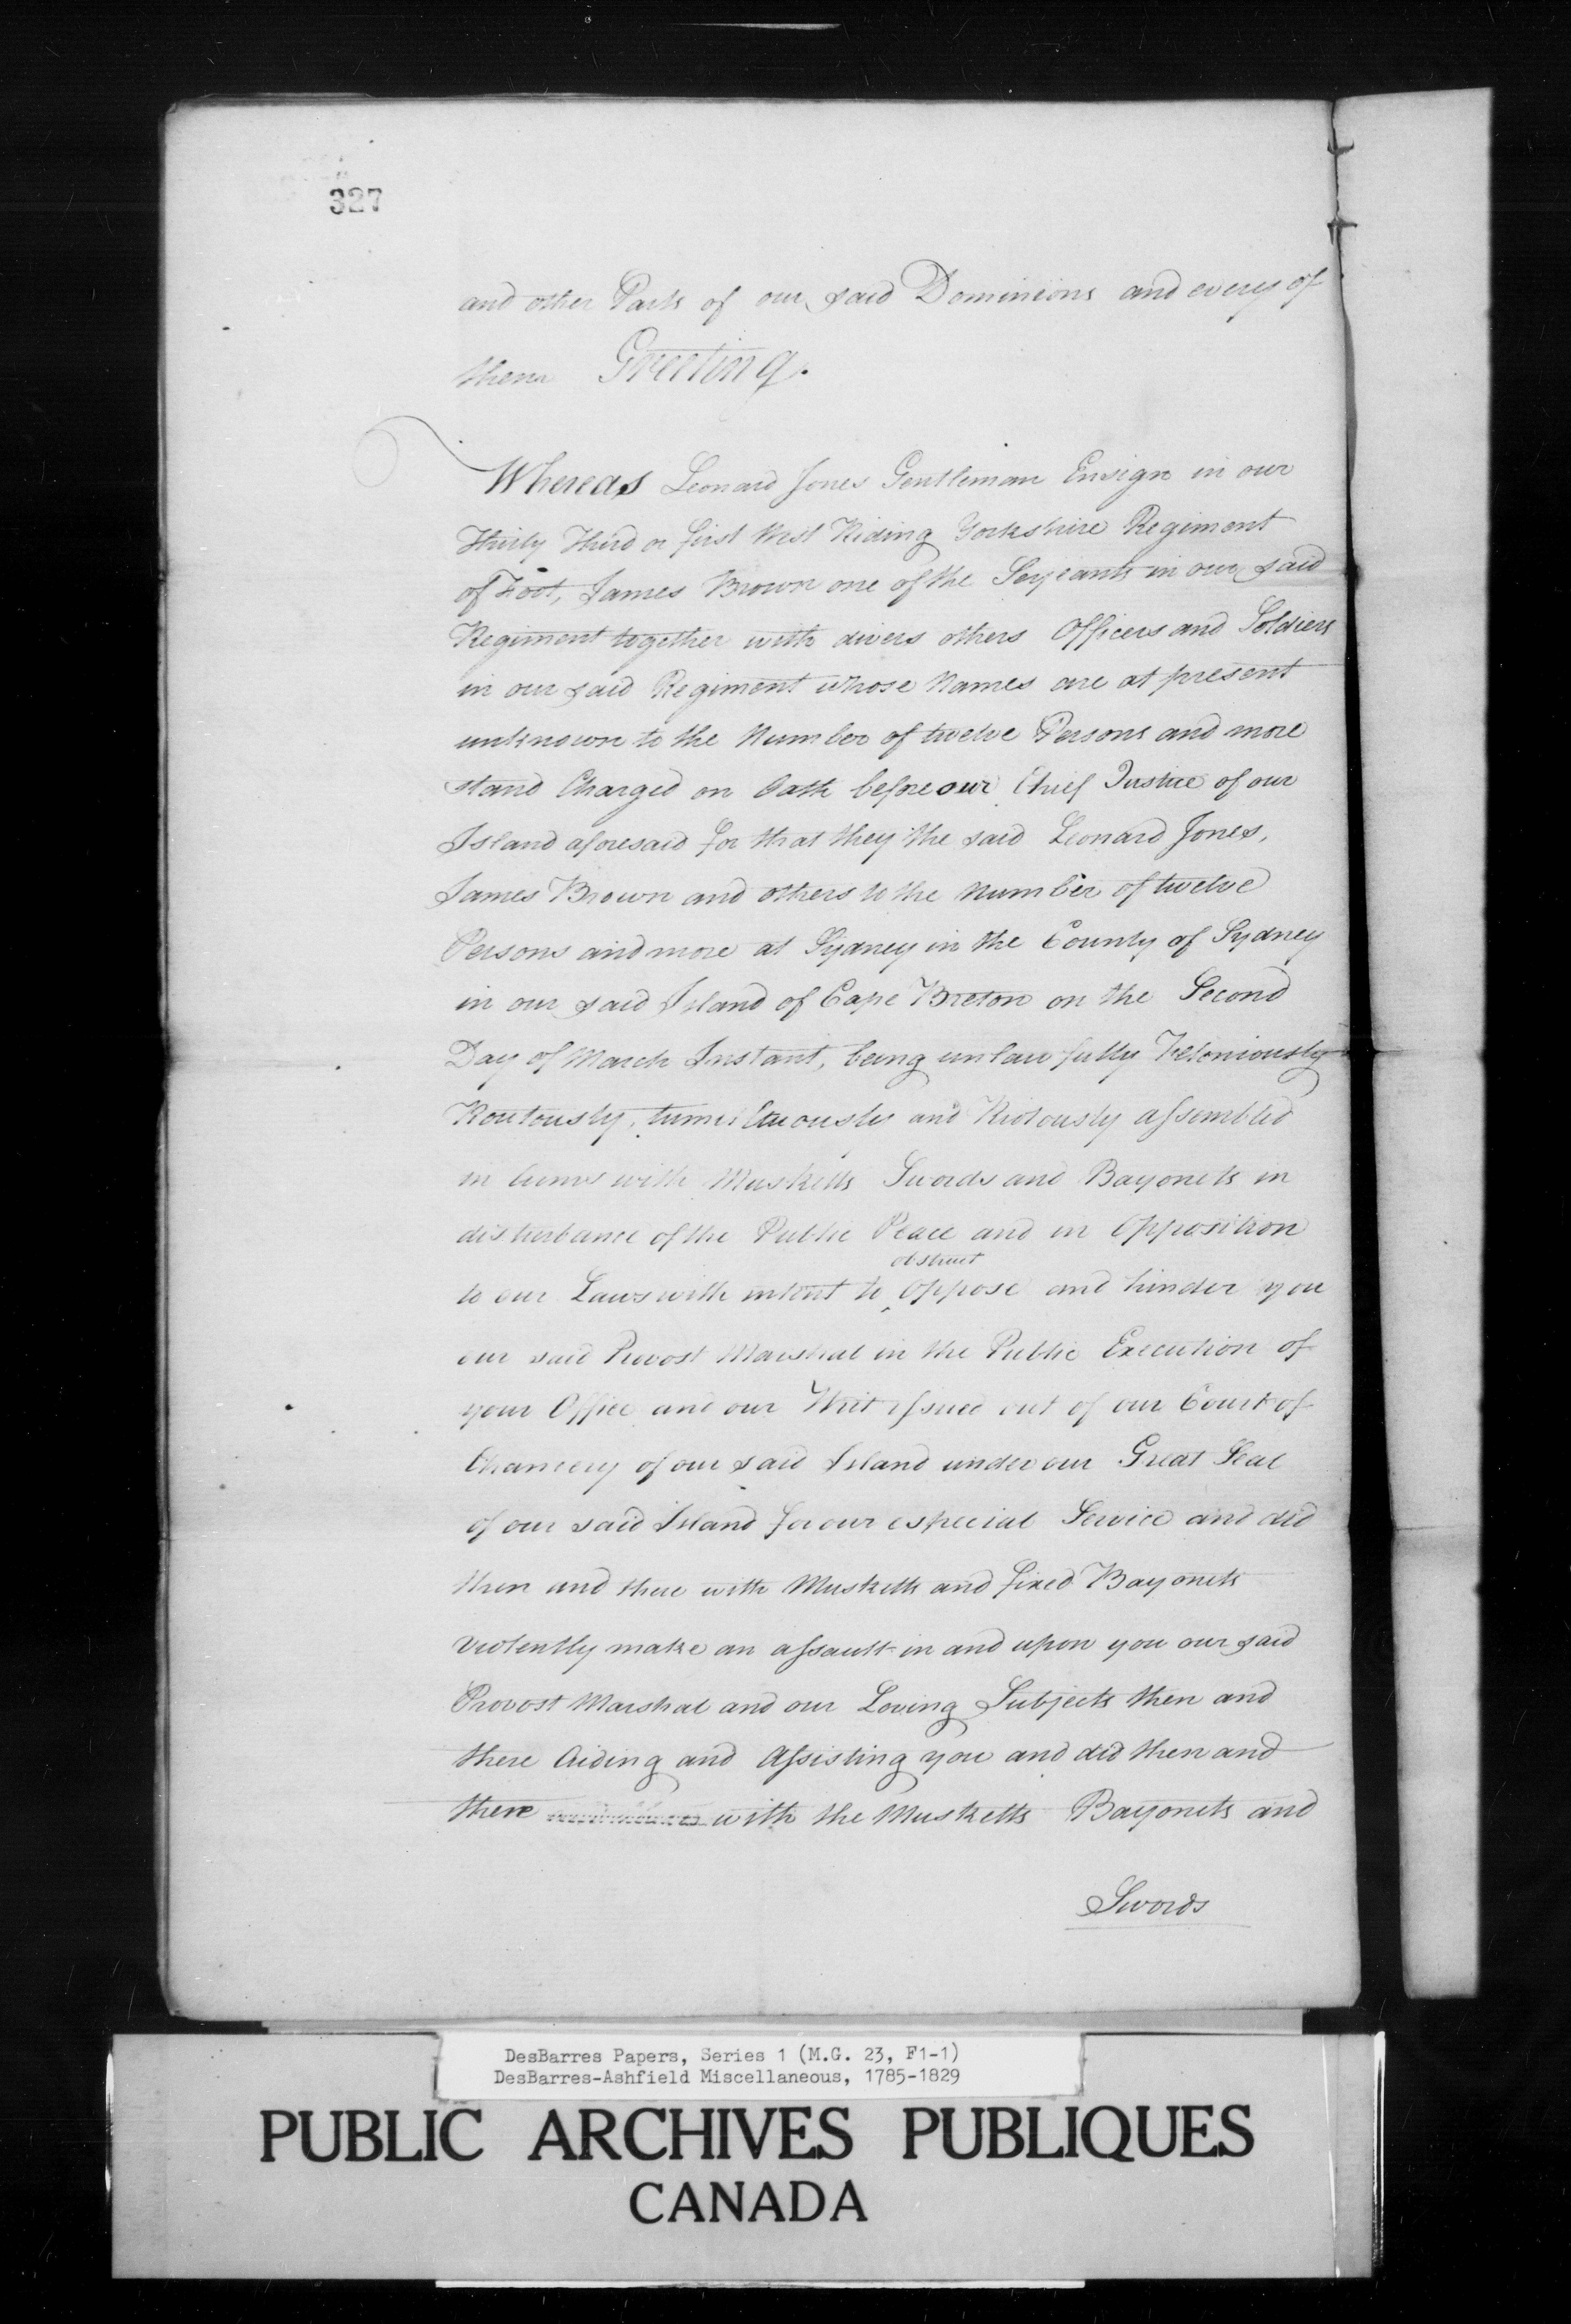 327
and other Parts of our said Dominions and every of
them Greeting.
Whereas Leonard Jones Gentleman Ensign in our
Thirty Third or first West Riding Yorkshire Regiment
of Foot, James Brown one of the Serjeants in our said
Regiment together with divers others Officers and Soldiers
in our said Regiment whose Names are at present
unknown to the Number of twelve Persons and more
stand Charged on Oath before our Chief Justice of our
Island aforesaid for that they the said Leonard Jones,
James Brown and others to the Number of twelve
Persons and more at Sydney in the County of Sydney
in our said Island of Cape Breton on the Second
Day of March Instant, being unlawfully Feloniously
Routously, tumultuously and Riotously assembled
in Arms with Musketts Swords and Bayonets in
disturbance of the Public Peace and in Opposition
obstruct
to our Laws with intent to Oppose and hinder you
our said Provost Marshal in the Public Execution of
your Office and our Writ issued out of our Court of
Chancery of our said Island under our Great Seal
of our said Island for our especial Service and did
then and there with Musketts and fixed Bayonets
violently make an assault in and upon you our said
Provost Marshal and our Loving Subjects then and
there Aiding and Assisting you and did then and
there with the Musketts Bayonets and
Swords
DesBarres Papers, Series 1 (M.G. 23, F1-1)
DesBarres-Ashfield Miscellaneous, 1785-1829
PUBLIC ARCHIVES PUBLIQUES
CANADA